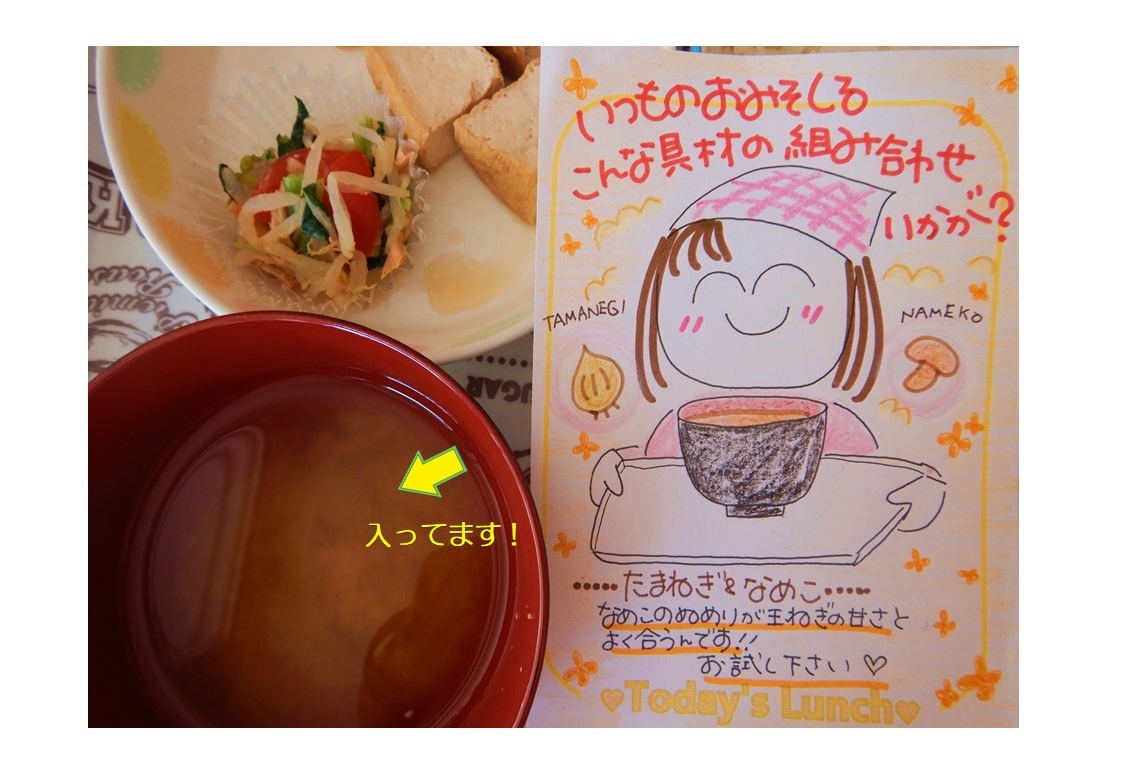 いつものおみそしる
こんな具材の組み合わせ
いかが？
TAMANEGI
NAMEKO
入ってます！
•••••たまねぎ&なめこ•••••
なめこのぬめりが玉ねぎの甘さと
よく合うんです!!
お試し下さい♡
♥Today's Lunch♥
UGAR